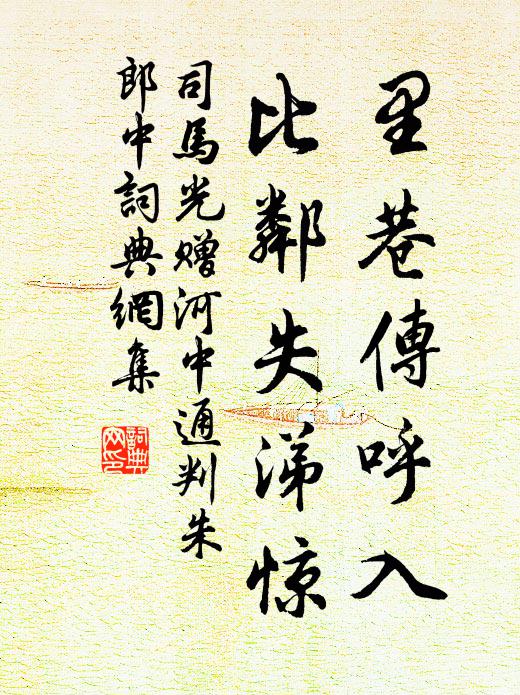 里巷傳呼入
比鄰失涕惊
司馬光赠河中通判朱
郎中詞典網集
詞典
网印